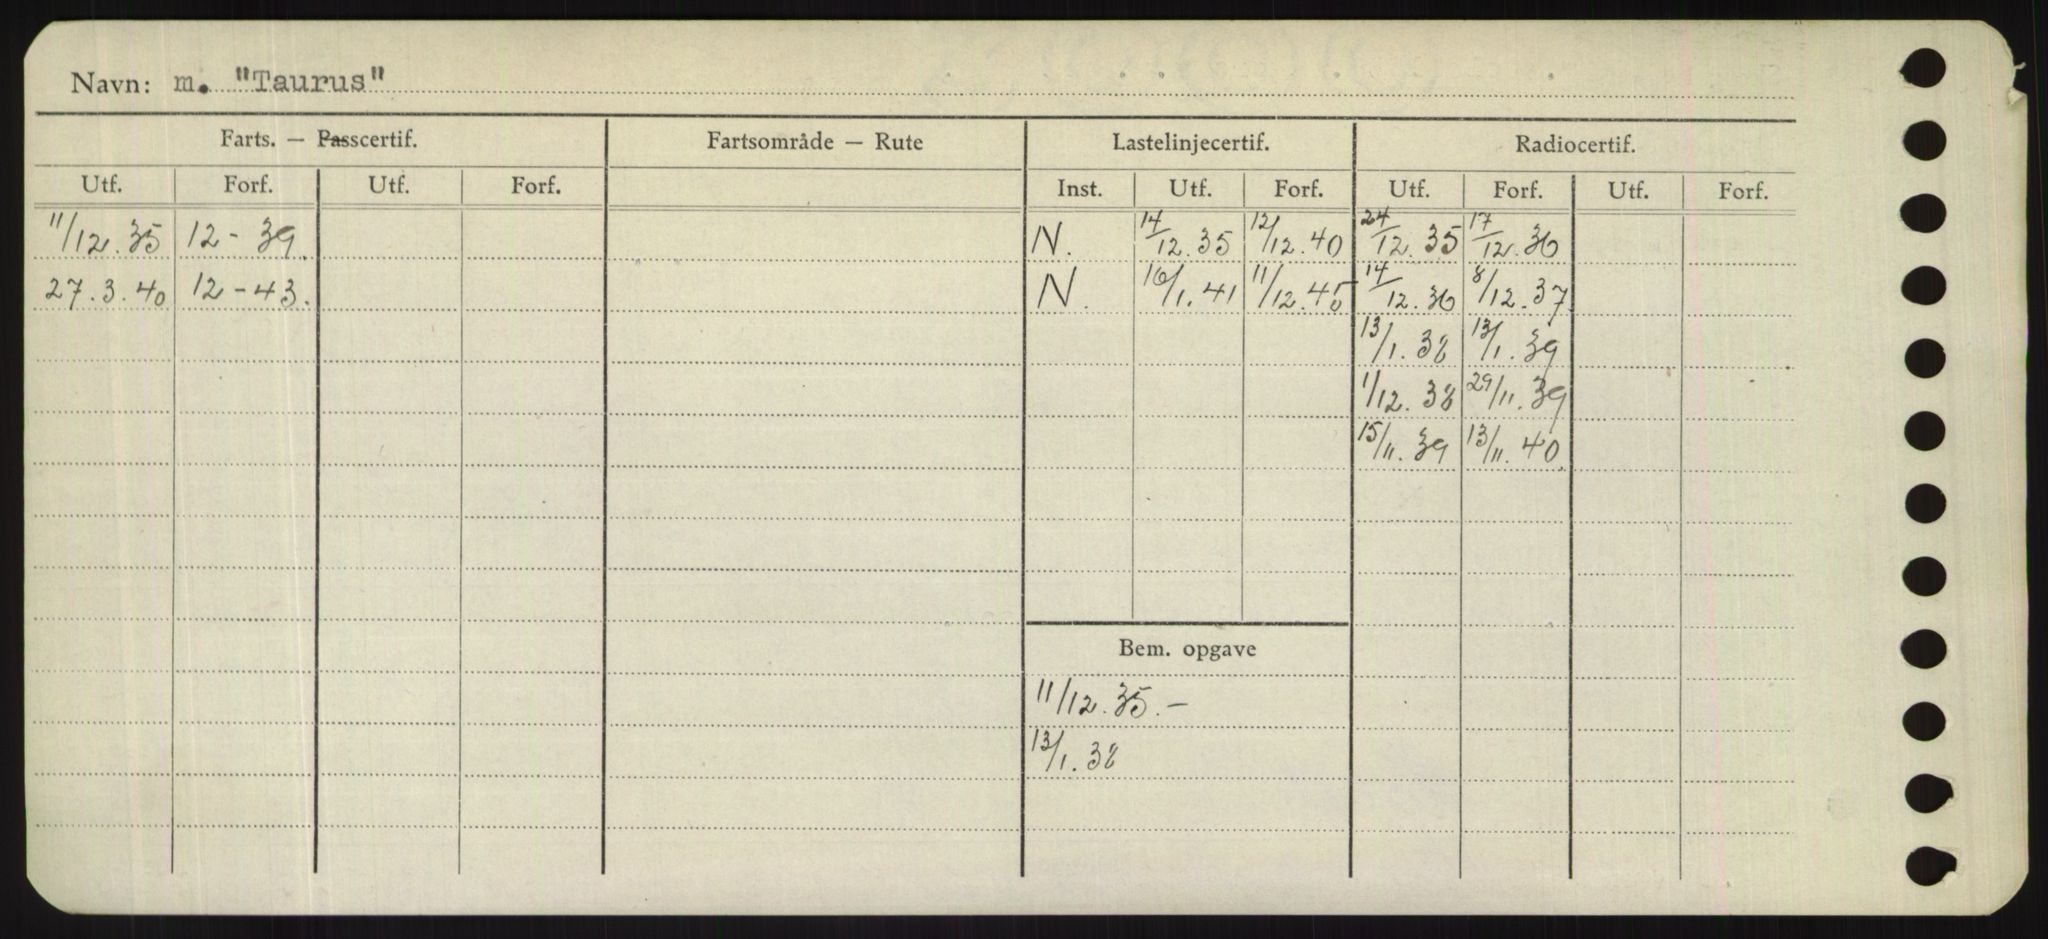 Navn: m. "Taurus"
Farts. — Passcertif. Fartsområde — Rute Lastelinjecertif. Radiocertif.
Utf. Forf. Utf. Forf. Inst. Utf. Forf. Utf. Forf. Utf. Forf.
11/12.35 12-39. N. 14/12.35 12/12.40 24/12.35 17/12.36
27.3.40 12-43. N. 16/1.41 11/12.45 14/12.36 8/12.37
13/1.38 13/1.39
1/12.38 29/11.39
15/11.39 13/11.40
Bem. opgave
11/12.35.-
13/1.38